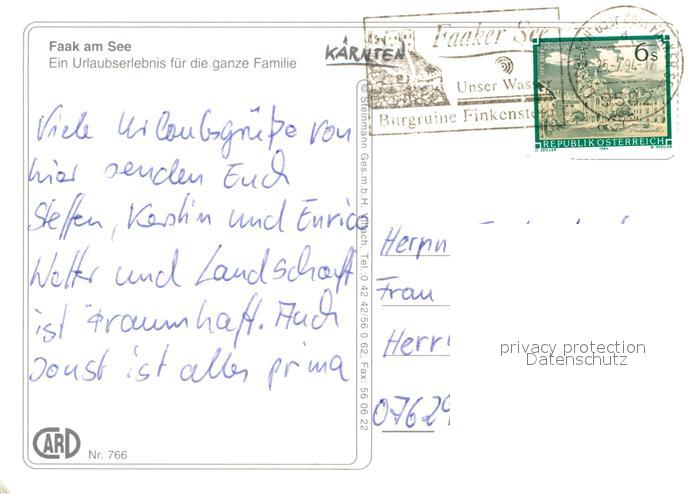 Faak am See
Ein Urlaubserlebnis für die ganze Familie
KÄRNTEN
Faaker See
Unser Wass
Burgruine Finkenste
6s
REPUBLIK ÖSTERREICH
Viele Urlaubsgrüße von
hier senden Euch
Steffen, Kerstin und Enrico
Wetter und Landschaft
ist traumhaft. Auch
sonst ist alles prima
© Steinmann Ges.m.b.H. Villach, Tel. 0 42 42/56 0 62, Fax: 56 06 22
Frau
07629
privacy protection
Datenschutz
CARD
Nr. 766